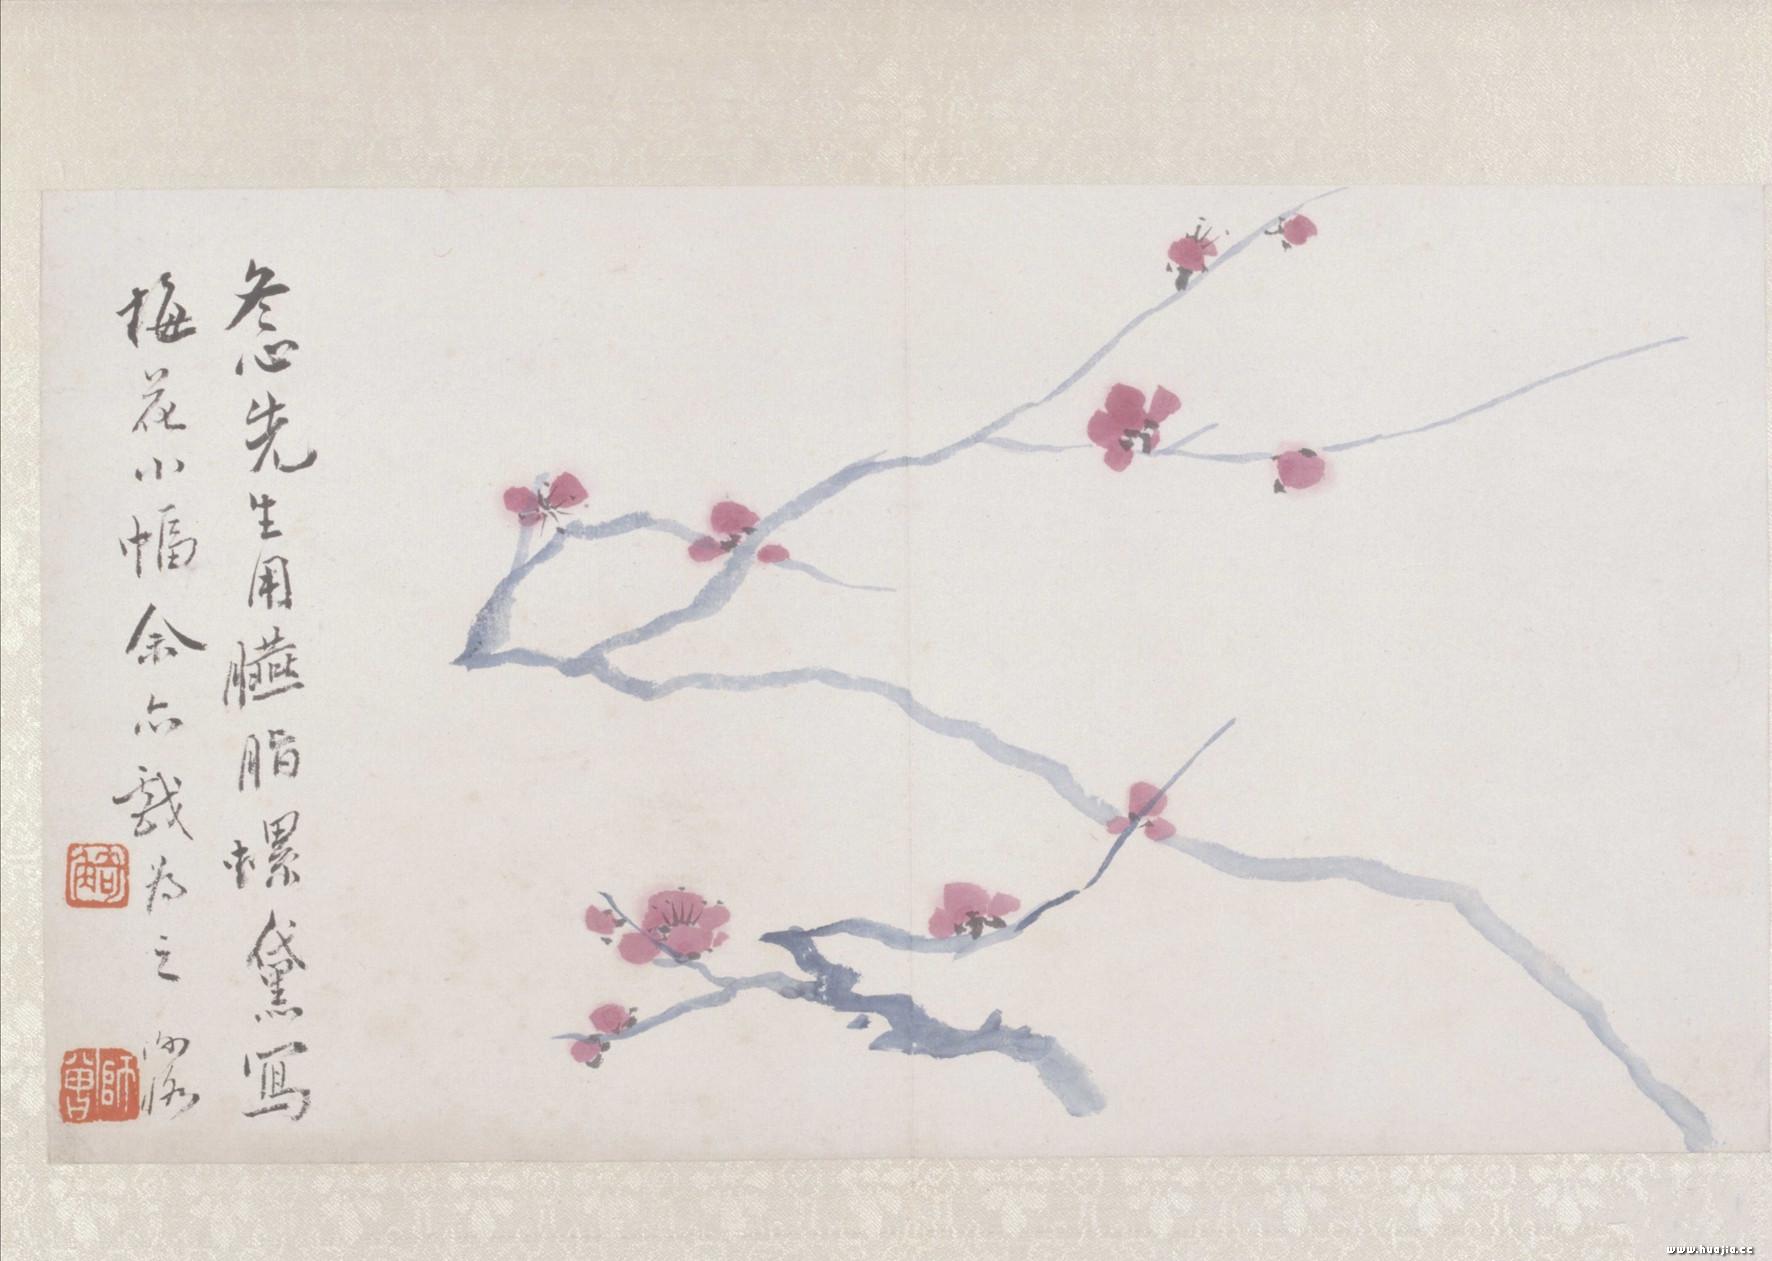 冬心先生用臙脂螺黛寫
梅花小幅余亦戲為之
師曾
www.huajia.cc